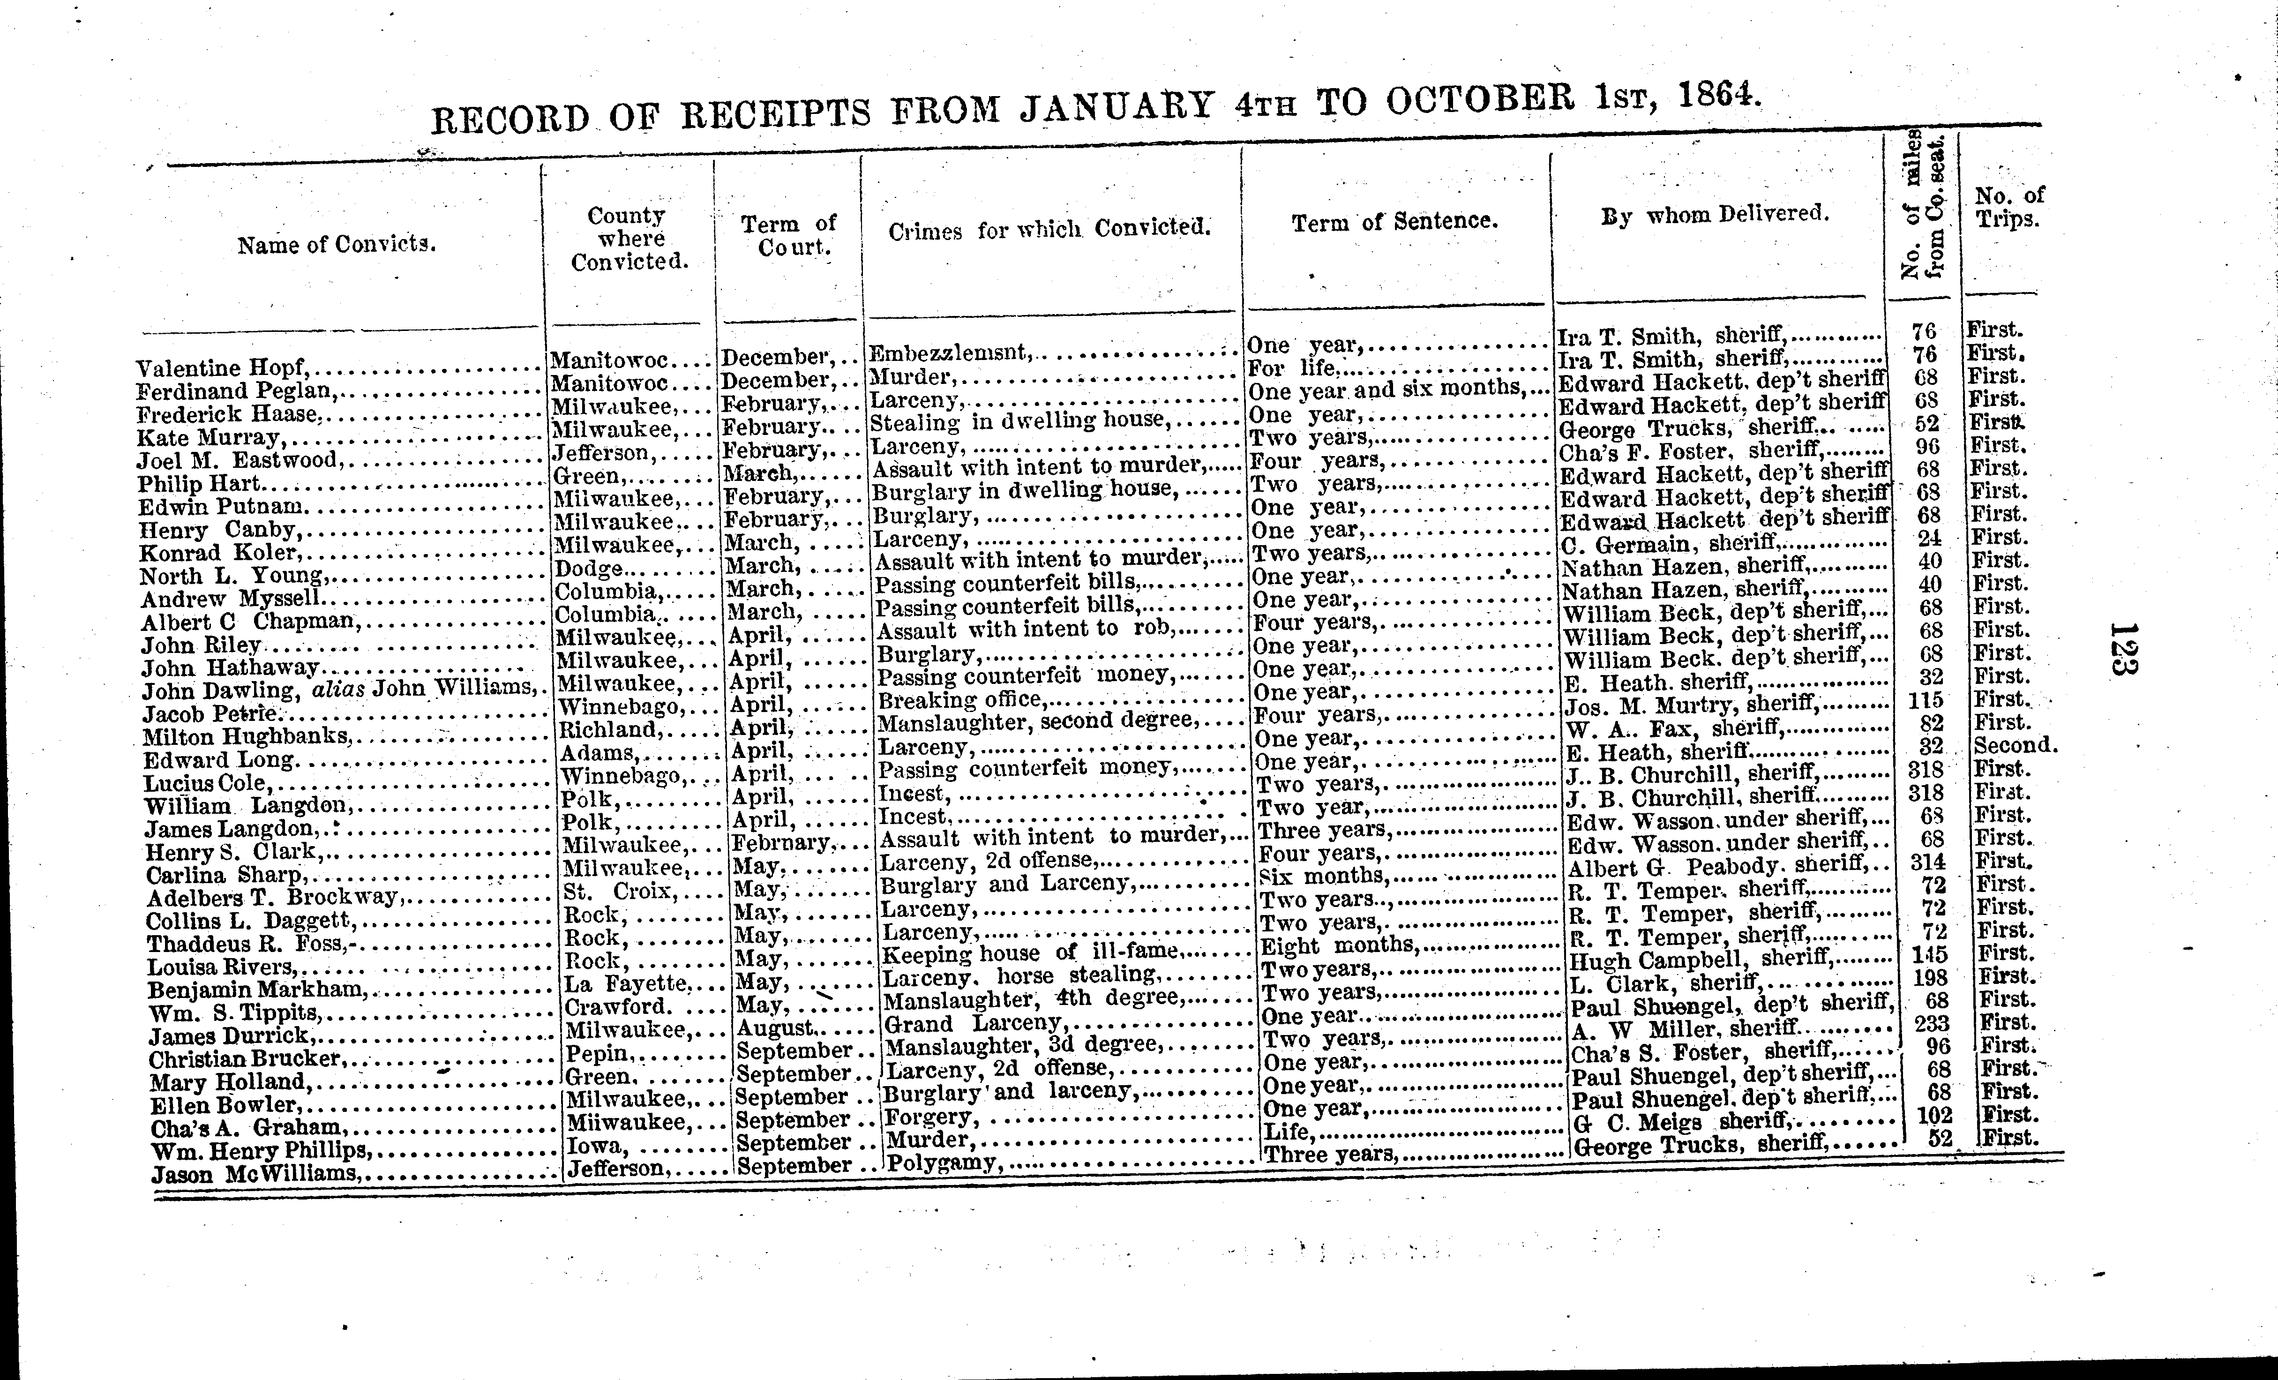 RECORD OF RECEIPTS FROM JANUARY 4TH TO OCTOBER 1ST, 1864.
Name of Convicts. County where Convicted. Term of Court. Crimes for which Convicted. Term of Sentence. By whom Delivered. No. of miles from Co. seat. No. of Trips.
Valentine Hopf, Manitowoc December, Embezzlemsnt, One year, Ira T. Smith, sheriff, 76 First.
Ferdinand Peglan, Manitowoc December, Murder, For life, Ira T. Smith, sheriff, 76 First.
Frederick Haase, Milwaukee, February, Larceny, One year and six months, Edward Hackett, dep't sheriff 68 First.
Kate Murray, Milwaukee, February Stealing in dwelling house, One year, Edward Hackett, dep't sheriff 68 First.
Joel M. Eastwood, Jefferson, February, Larceny, Two years, George Trucks, sheriff 52 First.
Philip Hart Green, March, Assault with intent to murder, Four years, Cha's F. Foster, sheriff, 96 First.
Edwin Putnam Milwaukee, February, Burglary in dwelling house, Two years, Edward Hackett, dep't sheriff 68 First.
Henry Canby, Milwaukee February, Burglary, One year, Edward Hackett, dep't sheriff 68 First.
Konrad Koler, Milwaukee, March, Larceny, One year, Edward Hackett dep't sheriff 68 First.
North L. Young, Dodge March, Assault with intent to murder, Two years, C. Germain, sheriff, 24 First.
Andrew Myssell Columbia, March, Passing counterfeit bills, One year, Nathan Hazen, sheriff, 40 First.
Albert C Chapman, Columbia March, Passing counterfeit bills, One year, Nathan Hazen, sheriff, 40 First.
John Riley Milwaukee, April, Assault with intent to rob, Four years, William Beck, dep't sheriff, 68 First.
John Hathaway Milwaukee, April, Burglary, One year, William Beck, dep't sheriff, 68 First.
John Dawling, alias John Williams, Milwaukee, April, Passing counterfeit money, One year, William Beck. dep't sheriff, 68 First.
Jacob Petrie Winnebago, April, Breaking office, One year, E. Heath. sheriff, 32 First.
Milton Hughbanks, Richland, April, Manslaughter, second degree, Four years, Jos. M. Murtry, sheriff, 115 First.
Edward Long Adams, April, Larceny, One year, W. A. Fax, sheriff, 82 First.
Lucius Cole, Winnebago, April, Passing counterfeit money, One year, E. Heath, sheriff 32 Second.
William Langdon, Polk, April, Incest, Two years, J. B. Churchill, sheriff, 318 First.
James Langdon, Polk, April, Incest, Two year, J. B. Churchill, sheriff 318 First.
Henry S. Clark, Milwaukee, February, Assault with intent to murder, Three years, Edw. Wasson. under sheriff, 68 First.
Carlina Sharp, Milwaukee, May, Larceny, 2d offense, Four years, Edw. Wasson. under sheriff, 68 First.
Adelbers T. Brockway, St. Croix, May, Burglary and Larceny, Six months, Albert G. Peabody. sheriff, 314 First.
Collins L. Daggett, Rock, May, Larceny, Two years, R. T. Temper. sheriff, 72 First.
Thaddeus R. Foss, Rock, May, Larceny, Two years, R. T. Temper, sheriff, 72 First.
Louisa Rivers, Rock, May, Keeping house of ill-fame, Eight months, R. T. Temper, sheriff, 72 First.
Benjamin Markham, La Fayette, May, Larceny. horse stealing, Two years, Hugh Campbell, sheriff, 145 First.
Wm. S. Tippits, Crawford. May, Manslaughter, 4th degree, Two years, L. Clark, sheriff, 198 First.
James Durrick, Milwaukee, August Grand Larceny, One year Paul Shuengel, dep't sheriff, 68 First.
Christian Brucker, Pepin, September Manslaughter, 3d degree, Two years, A. W Miller, sheriff 233 First.
Mary Holland, Green. September Larceny, 2d offense, One year, Cha's S. Foster, sheriff, 96 First.
Ellen Bowler, Milwaukee, September Burglary and larceny, One year, Paul Shuengel, dep't sheriff, 68 First.
Cha's A. Graham, Miiwaukee, September Forgery, One year, Paul Shuengel. dep't sheriff, 68 First.
Wm. Henry Phillips, Iowa, September Murder, Life, G C. Meigs sheriff, 102 First.
Jason McWilliams, Jefferson, September Polygamy, Three years, George Trucks, sheriff, 52 First.
123